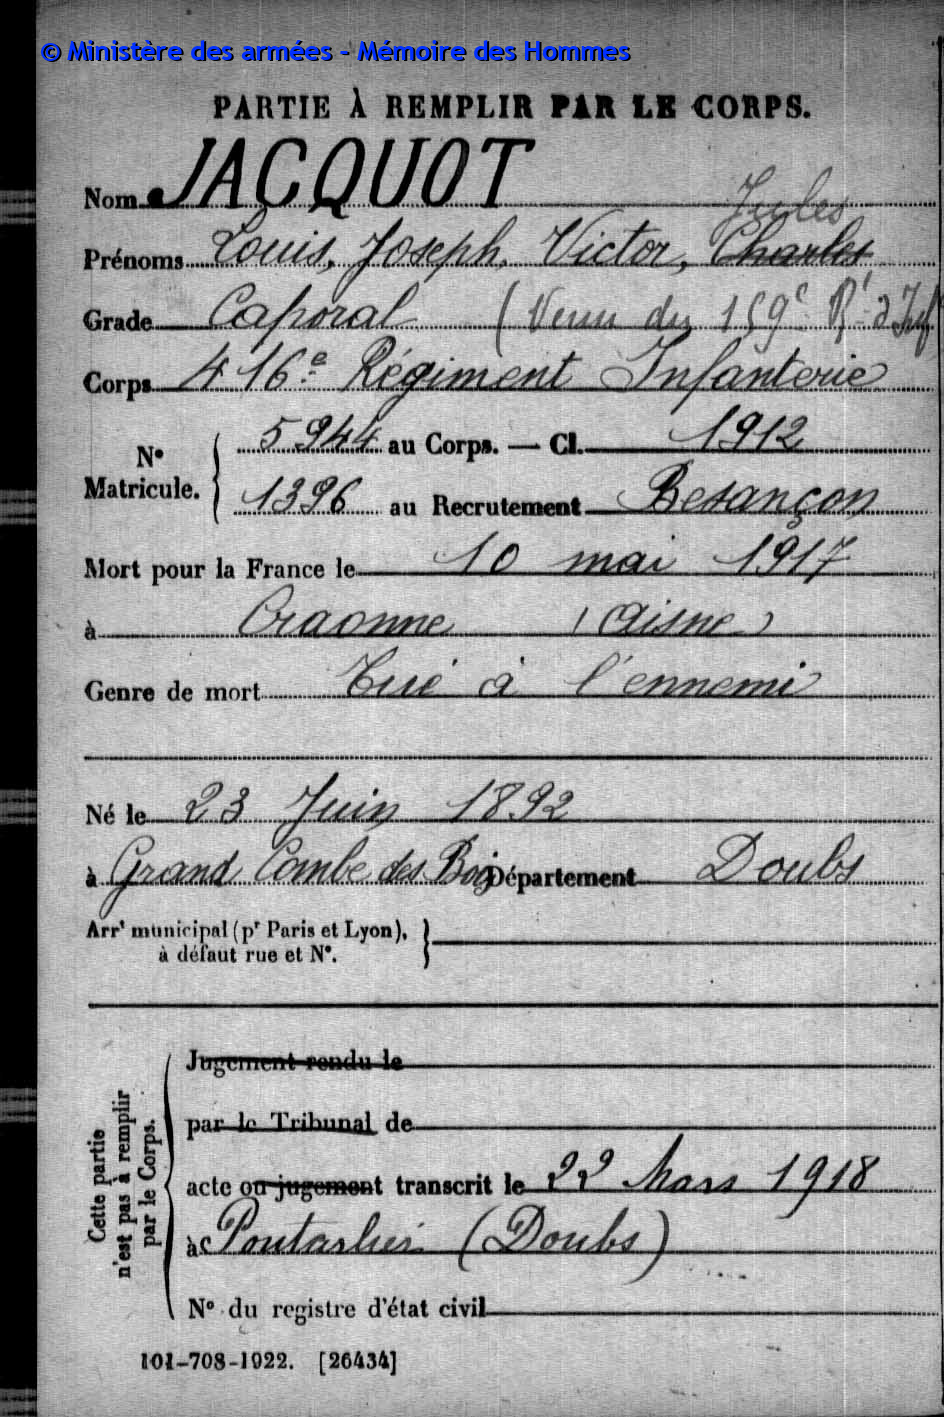 © Ministère des armées - Mémoire des Hommes
PARTIE À REMPLIR PAR LE CORPS.
Nom JACQUOT
Jules
Prénoms Louis, Joseph, Victor, Charles
Grade Caporal (Venu du 159e Rt d'Inf
Corps 416e Régiment Infanterie
N° Matricule. 5944 au Corps. — Cl. 1912
1396 au Recrutement Besançon
Mort pour la France le 10 mai 1917
à Craonne (Aisne)
Genre de mort Tué à l'ennemi
Né le 23 Juin 1892
à Grand Combe des Bois Département Doubs
Arrt municipal (pr Paris et Lyon),
à défaut rue et N°.
Cette partie
n'est pas à remplir
par le Corps.
Jugement rendu le
par le Tribunal de
acte ou jugement transcrit le 22 Mars 1918
à Pontarlier (Doubs)
N° du registre d'état civil
101-708-1922. [26434]